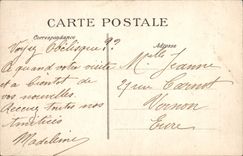 CARTE POSTALE
Correspondance
Adresse
Voyez Obélisque !?
A quand votre visite
et à bientôt de
vos nouvelles.
Recevez toutes nos
amitiés
Madeleine
Melle Jeanne
27 rue Carnot
Vernon
Eure